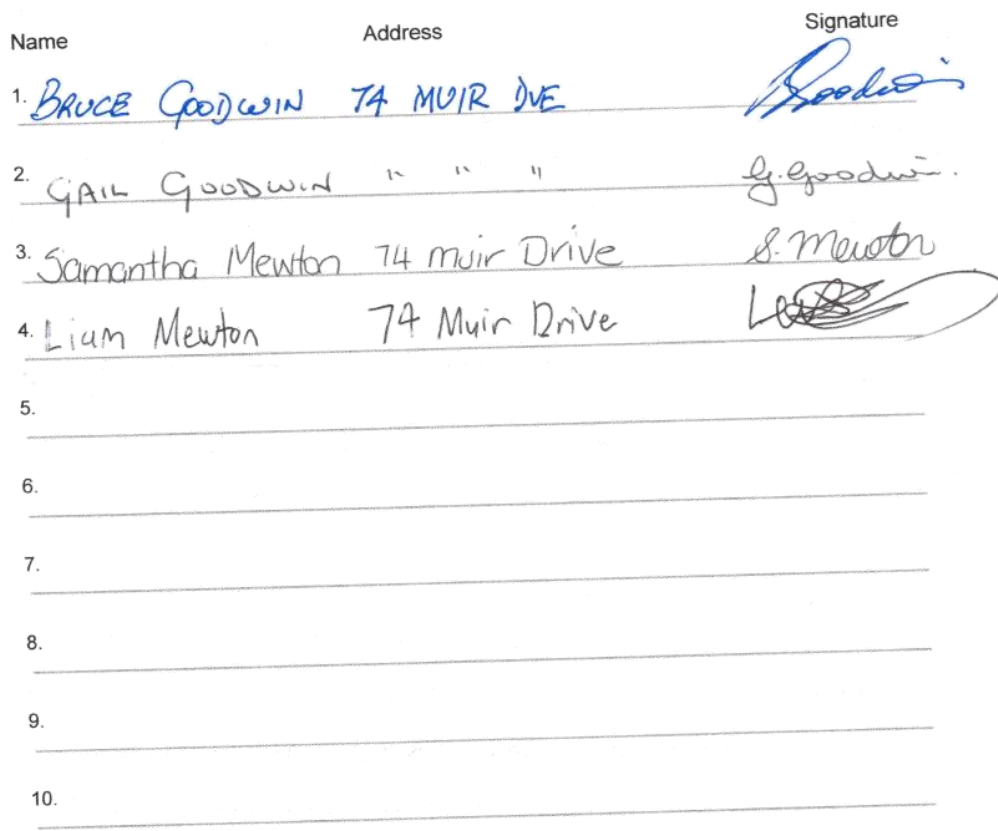 Name Address Signature
1. BRUCE GOODWIN 74 MUIR DVE BGoodwin
2. GAIL GOODWIN " " " G. Goodwin.
3. Samantha Mewton 74 muir Drive S. Mewton
4. Liam Mewton 74 Muir Drive
5.
6.
7.
8.
9.
10.